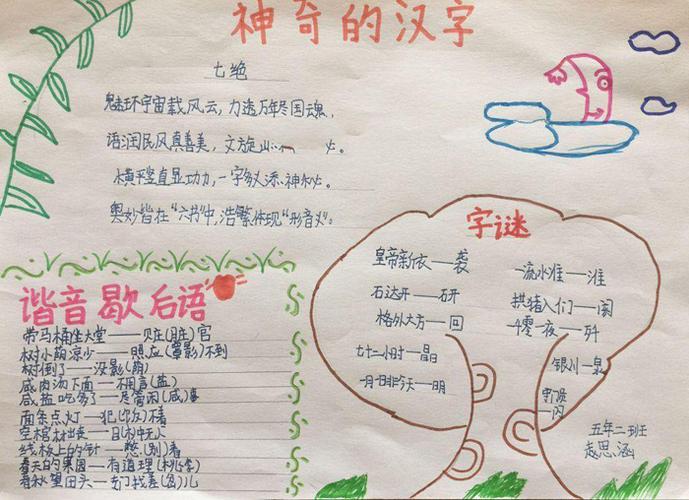 神奇的汉字
七绝
魅环宇宙载风云,力透万年尽国魂,
语润民风真善美,文旋山 。
横平竖直显功力,一字 添神秘。
奥妙皆在“六书”中,浩繁体现“形音义”。
谐音歇后语
带马桶坐大堂——贝在(脏)官
树小荫凉少——照应(罩影)不到
树倒了——没影(荫)
咸肉汤下面——不用言(盐)
咸盐吃多了——尽管闲(咸)
面条点灯——犯(饭)不着
空棺材出丧——目(木)中无人
线板上的针——憋(别)着
春天的果园——有道理(桃李)
春秋望田头——专门找 儿
字谜
皇帝新衣——袭
石达开——研
格外大方——回
七十二小时——晶
一月一日非今天——明
一流水准——准
拱猪入门——阂
一千零一夜——歼
银川——泉
一闪
五年二班
赵思涵